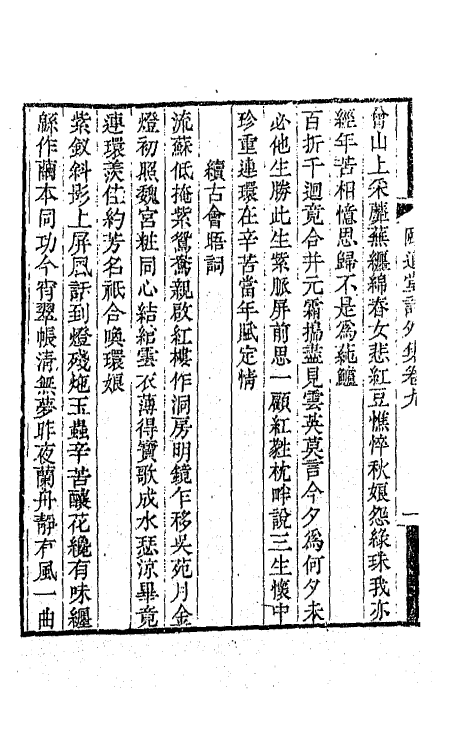 頤道堂詩外集卷九
一
曾山上采蘼蕪纏綿春女悲紅豆憔悴秋娘怨綠珠我亦
經年苦相憶思歸不是爲蒓鱸
百折千迴竟合并元霜搗盡見雲英莫言今夕爲何夕未
必他生勝此生紫脈屏前思一顧紅㲲枕畔說三生懷中
珍重連環在辛苦當年賦定情
續古會晤詞
流蘇低掩紫鴛鴦親啟紅樓作洞房明鏡乍移吳苑月金
燈初照魏宮粧同心結綰雲衣薄得寶歌成水瑟涼畢竟
連環羨佳約芳名祇合喚環娘
紫釵斜影上屏風話到燈殘灺玉蟲辛苦釀花纔有味纏
綿作繭本同功今宵翠帳清無夢昨夜蘭舟靜有風一曲